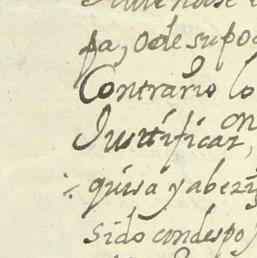 pa, o de supo
Contrario lo
en
Justificar,
quisa y aberi
sido condespo